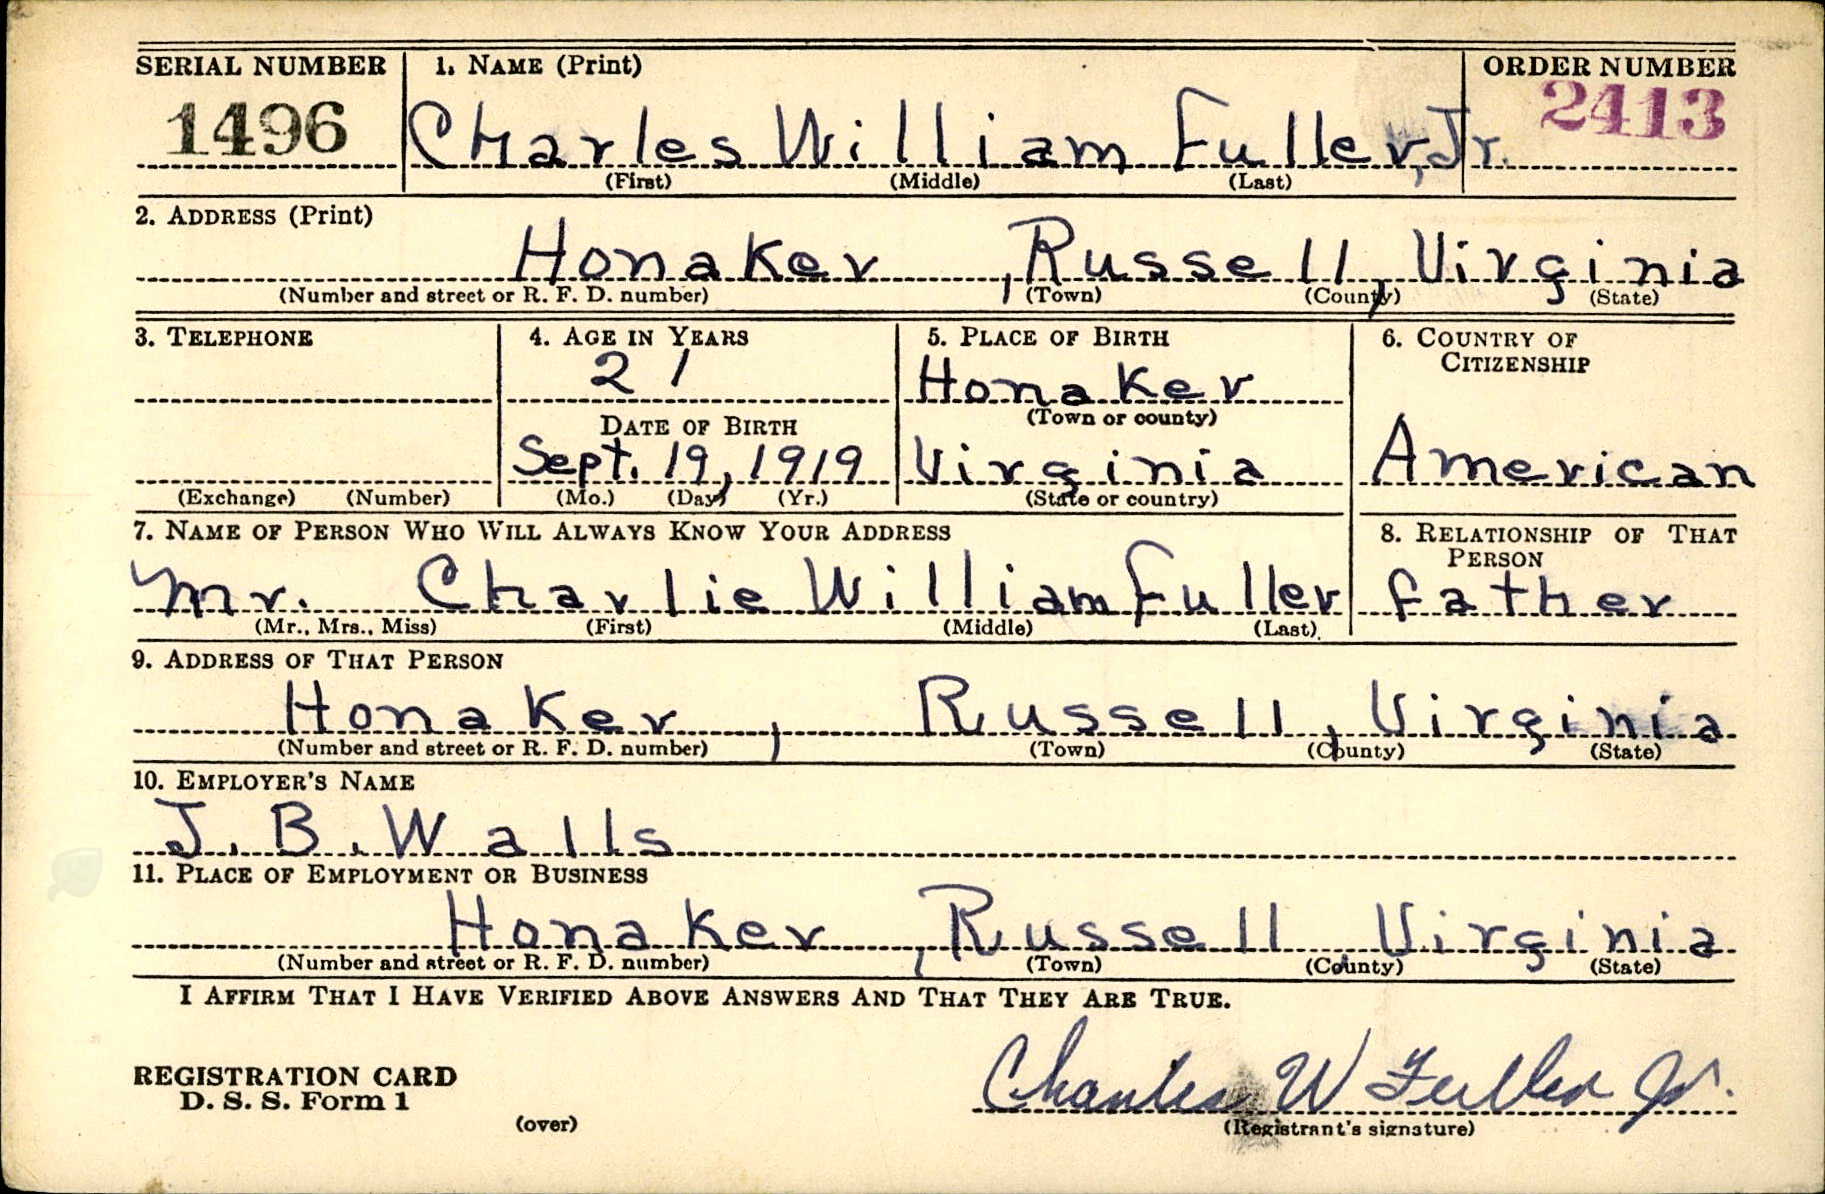 SERIAL NUMBER 1. NAME (Print) ORDER NUMBER
1496 Charles William Fuller, Jr. 2413
(First) (Middle) (Last)
2. ADDRESS (Print)
Honaker, Russell, Virginia
(Number and street or R. F. D. number) (Town) (County) (State)
3. TELEPHONE 4. AGE IN YEARS 5. PLACE OF BIRTH 6. COUNTRY OF CITIZENSHIP
21 Honaker
DATE OF BIRTH (Town or county)
Sept. 19, 1919 Virginia American
(Exchange) (Number) (Mo.) (Day) (Yr.) (State or country)
7. NAME OF PERSON WHO WILL ALWAYS KNOW YOUR ADDRESS 8. RELATIONSHIP OF THAT PERSON
Mr. Charlie William Fuller father
(Mr., Mrs., Miss) (First) (Middle) (Last)
9. ADDRESS OF THAT PERSON
Honaker, Russell, Virginia
(Number and street or R. F. D. number) (Town) (County) (State)
10. EMPLOYER'S NAME
J. B. Walls
11. PLACE OF EMPLOYMENT OR BUSINESS
Honaker, Russell, Virginia
(Number and street or R. F. D. number) (Town) (County) (State)
I AFFIRM THAT I HAVE VERIFIED ABOVE ANSWERS AND THAT THEY ARE TRUE.
REGISTRATION CARD
D. S. S. Form 1
Charles W Fuller Jr.
(over) (Registrant's signature)